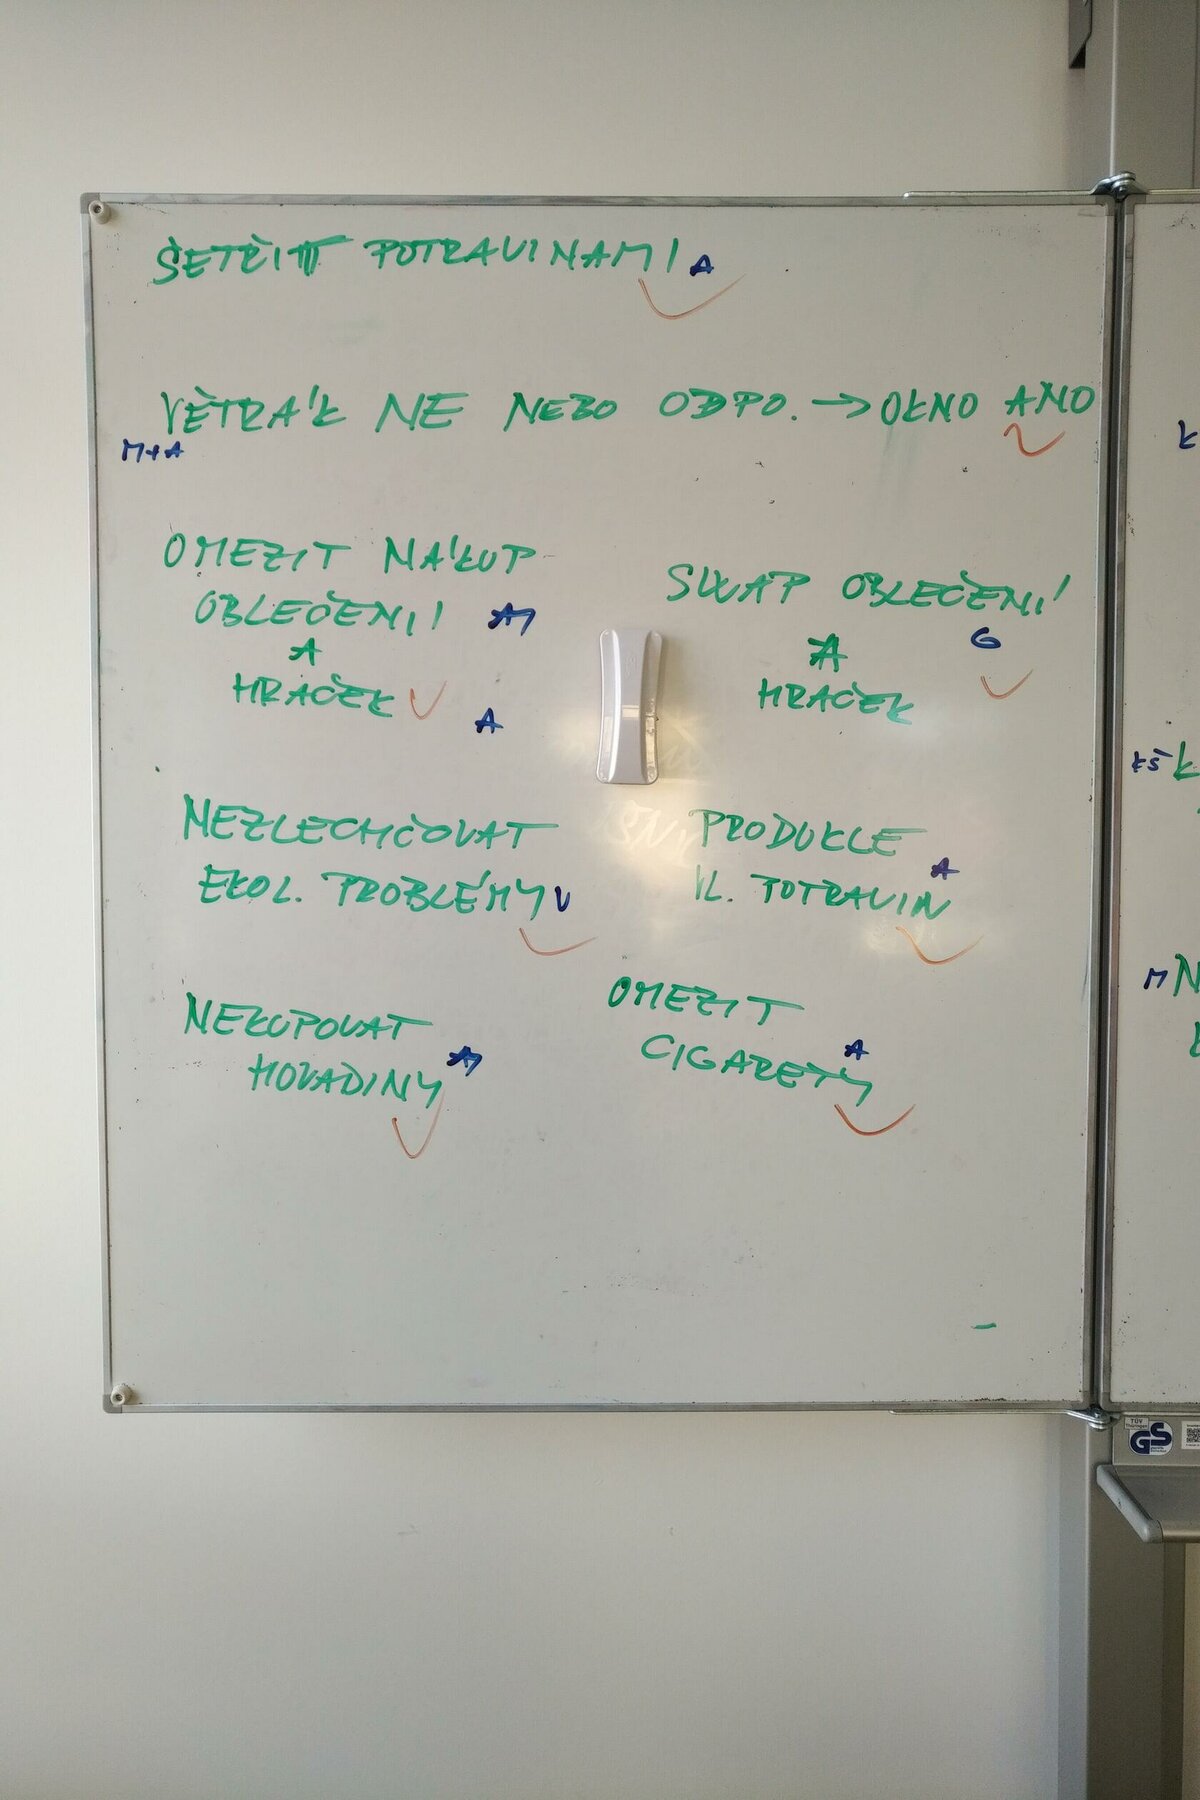 ŠETŘIT POTRAVINAMI A
VĚTRÁK NE NEBO ODPO. → OKNO ANO
M+A
OMEZIT NÁKUP
OBLEČENÍ
A
HRAČEK
A
SWAP OBLEČENÍ
G
A
HRAČEK
NEZLECHČOVAT
EKOL. PROBLÉMY V
PRODUKCE
VL. POTRAVIN A
NEKUPOVAT
HOVADINY
OMEZIT
CIGARETY A
K
KŠ K
M N
TÜV
GS